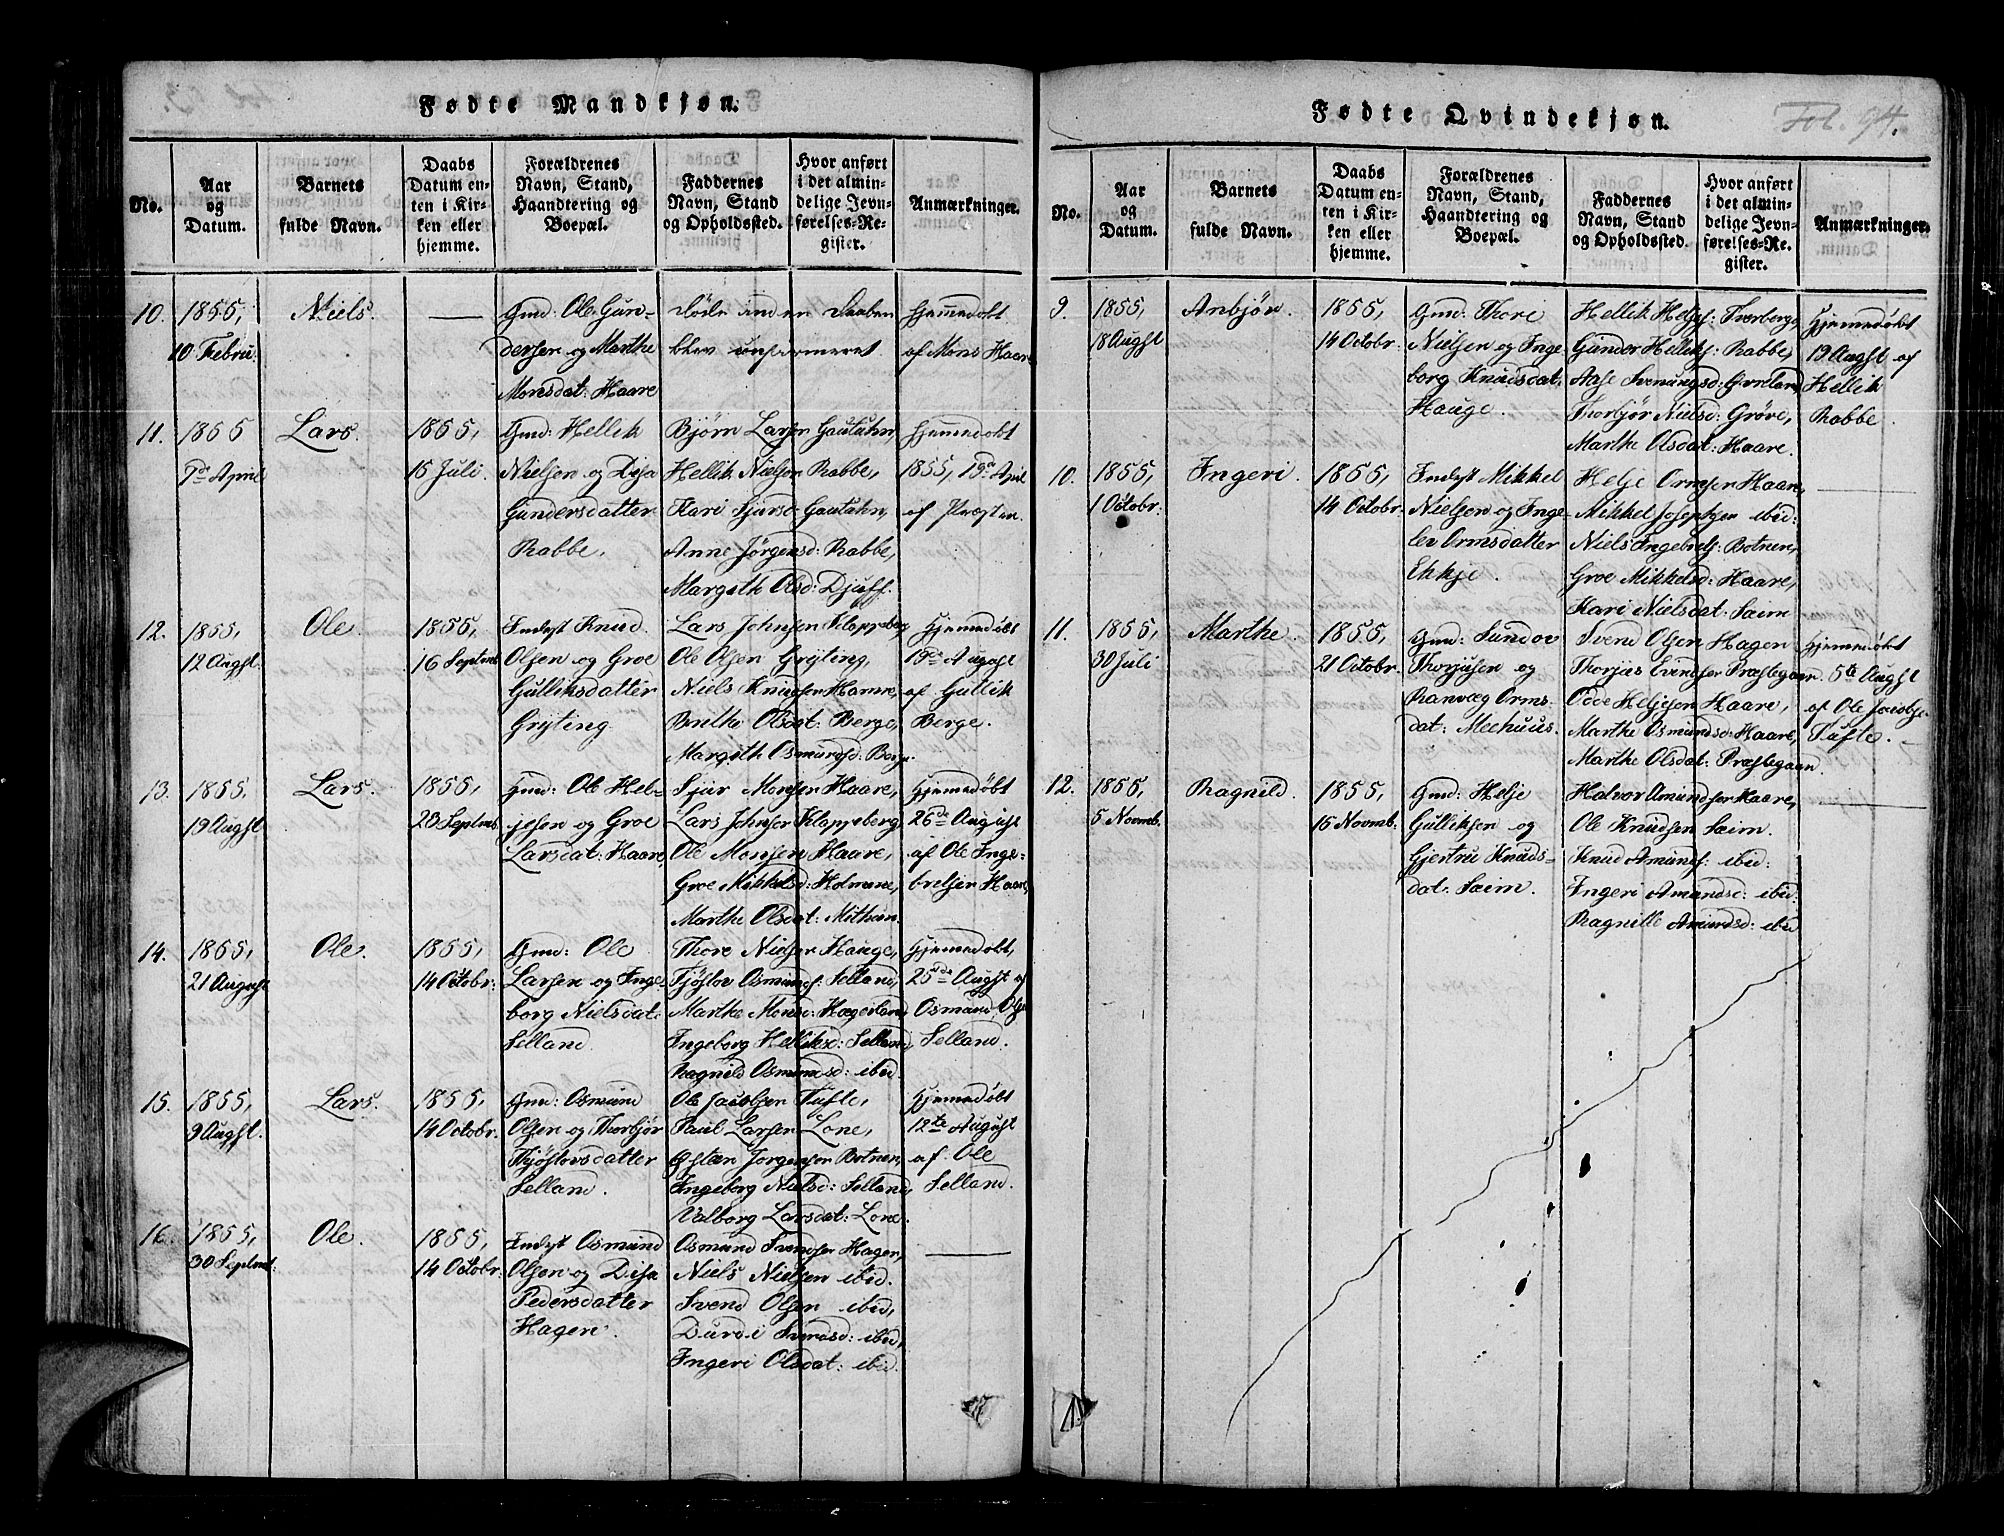 Fødte Mandkjøn.
No.
Aar
og
Datum.
Barnets
fulde Navn.
Daabs
Datum en-
ten i Kir-
ken eller
hjemme.
Forældrenes
Navn, Stand,
Haandtering og
Boepæl.
Faddernes
Navn, Stand
og Opholdssted.
Hvor anført
i det almin-
delige Jevn-
førelses-Re-
gister.
Anmærkninger.
10.
1855,
10 Febru:
Niels.
—
Gmd: Ole Gun-
dersen og Marthe
Monsdat: Haare
Døde inden Daaben
blev confirmeret
Hjemmedøbt
af Mons Haare
11.
1855
9de April
Lars.
1855,
15 Juli.
Gmd: Hellik
Nielsen og Disa
Gundersdatter
Rabbe.
Bjørn Larsen Gautuhn,
Hellik Nielsen Rabbe,
Kari Sjursd: Gautuhn,
Anne Jørgensd: Rabbe,
Margith Olsd: Djuff.
Hjemmedøbt
1855, 19de April
af Præsten.
12.
1855,
12 Augst.
Ole.
1855,
16 Septmb.
Indst Knud
Olsen og Groe
Gulliksdatter
Grÿting.
Lars Johnsen Kloppeberg
Ole Olsen Grÿting,
Niels Knudsen Haare,
Birthe Olsdat: Berge,
Margith Osmundsd: Berge.
Hjemmedøbt
19de August
af Gullik
Berge.
13.
1855,
19 Augst
Lars.
1855,
23 Septmb.
Gmd: Ole Hel-
jesen og Groe
Larsdat: Haare
Sjur Monsen Haare,
Lars Johnsen Kloppeberg
Ole Monsen Haare,
Groe Mikkelsd: Holmene,
Marthe Olsdat: Mithun.
Hjemmedøbt
26de August
af Ole Inge-
bretsen Haare,
14.
1855,
21 August
Ole.
1855,
14 Octobr:
Gmd: Ole
Larsen og Inge-
borg Nielsdat:
Selland.
Thore Nielsen Hauge,
Tjøstov Osmundss: Selland,
Marthe Monsd: Hægerland,
Ingeborg Helliksd: Selland,
Ragnild Osmundsd: ibid.
Hjemmedøbt,
25de Augst af
Osmund Olse
Selland.
15.
1855,
9 Augst.
Lars.
1855,
14 Octobr.
Gmd: Osmund
Olsen og Thorbjør
Thjøstovsdatter
Selland.
Ole Jacobsen Tufte,
Paul Larsen Lone,
Østen Jørgensen Botnen,
Ingeborg Nielsd: Selland,
Valborg Larsdat: Lone.
Hjemmedøbt
12te August
af Ole
Selland.
16.
1855,
30 Septmb:
Ole.
1855,
14 Octobr:
Indst Osmund
Olsen og Disa
Pedersdatter
Hagen.
Osmund Svendsen Hagen,
Niels Nielsen ibid.
Svend Olsen ibid,
Durdi Svendsd: ibid,
Ingeri Olsdat: ibid.
Fødte Qvindekjøn.
Fol. 94.
No.
Aar
og
Datum.
Barnets
fulde Navn.
Daabs
Datum en-
ten i Kir-
ken eller
hjemme.
Forældrenes
Navn, Stand,
Haandtering og
Boepæl.
Faddernes
Navn, Stand
og Opholdssted.
Hvor anført
i det almin-
delige Jevn-
førelses-Re-
gister.
Anmærkninger.
9.
1855,
18 Augst
Anbjør.
1855,
14 Octobr.
Gmd: Thore
Nielsen og Inge
borg Knudsdat:
Hauge.
Hellik Helges: Tverberge,
Gunder Helliks: Rabbe,
Aase Svenungsd: Gvreland,
Thorbjør Nielsd: Grøve,
Marthe Olsdat: Haare.
Hjemmedøbt
19 Augst af
Hellik
Rabbe.
10.
1855,
1 Octobr:
Ingeri.
1855,
14 Octobr.
Indst Mikkel
Nielsen og Inge
lev Ormsdatter
Ekkje.
Helje Ormsen Haare,
Mikkel Josephsen ibid:
Niels Ingebrets: Botnen,
Groe Mikkelsd: Haare,
Kari Nielsdat: Seim
11.
1855,
30 Juli
Marthe.
1855,
21 Octobr.
Gmd: Sundov
Thorjusen og
Ranvæg Orms
dat: Meehuus.
Svend Olsen Hagen
Thorjus Evindsen Præstegaan.
Odde Heljesen Haare,
Marthe Osmundsd: Haare,
Marthe Olsdat: Præstegaan.
Hjemmedøbt
5te Augst
af Ole Jacobse
Tufte.
12.
1855,
5 Novmb.
Ragnild.
1855,
15 Novmb:
Gmd: Helje
Gulliksen og
Gjertru Knuds-
dat: Seim.
Halvor Amundsen Haare,
Ole Knudsen Seim.
Knud Amunds: ibid:
Ingeri Amundsd: ibid:
Ragnille Amundsd: ibid